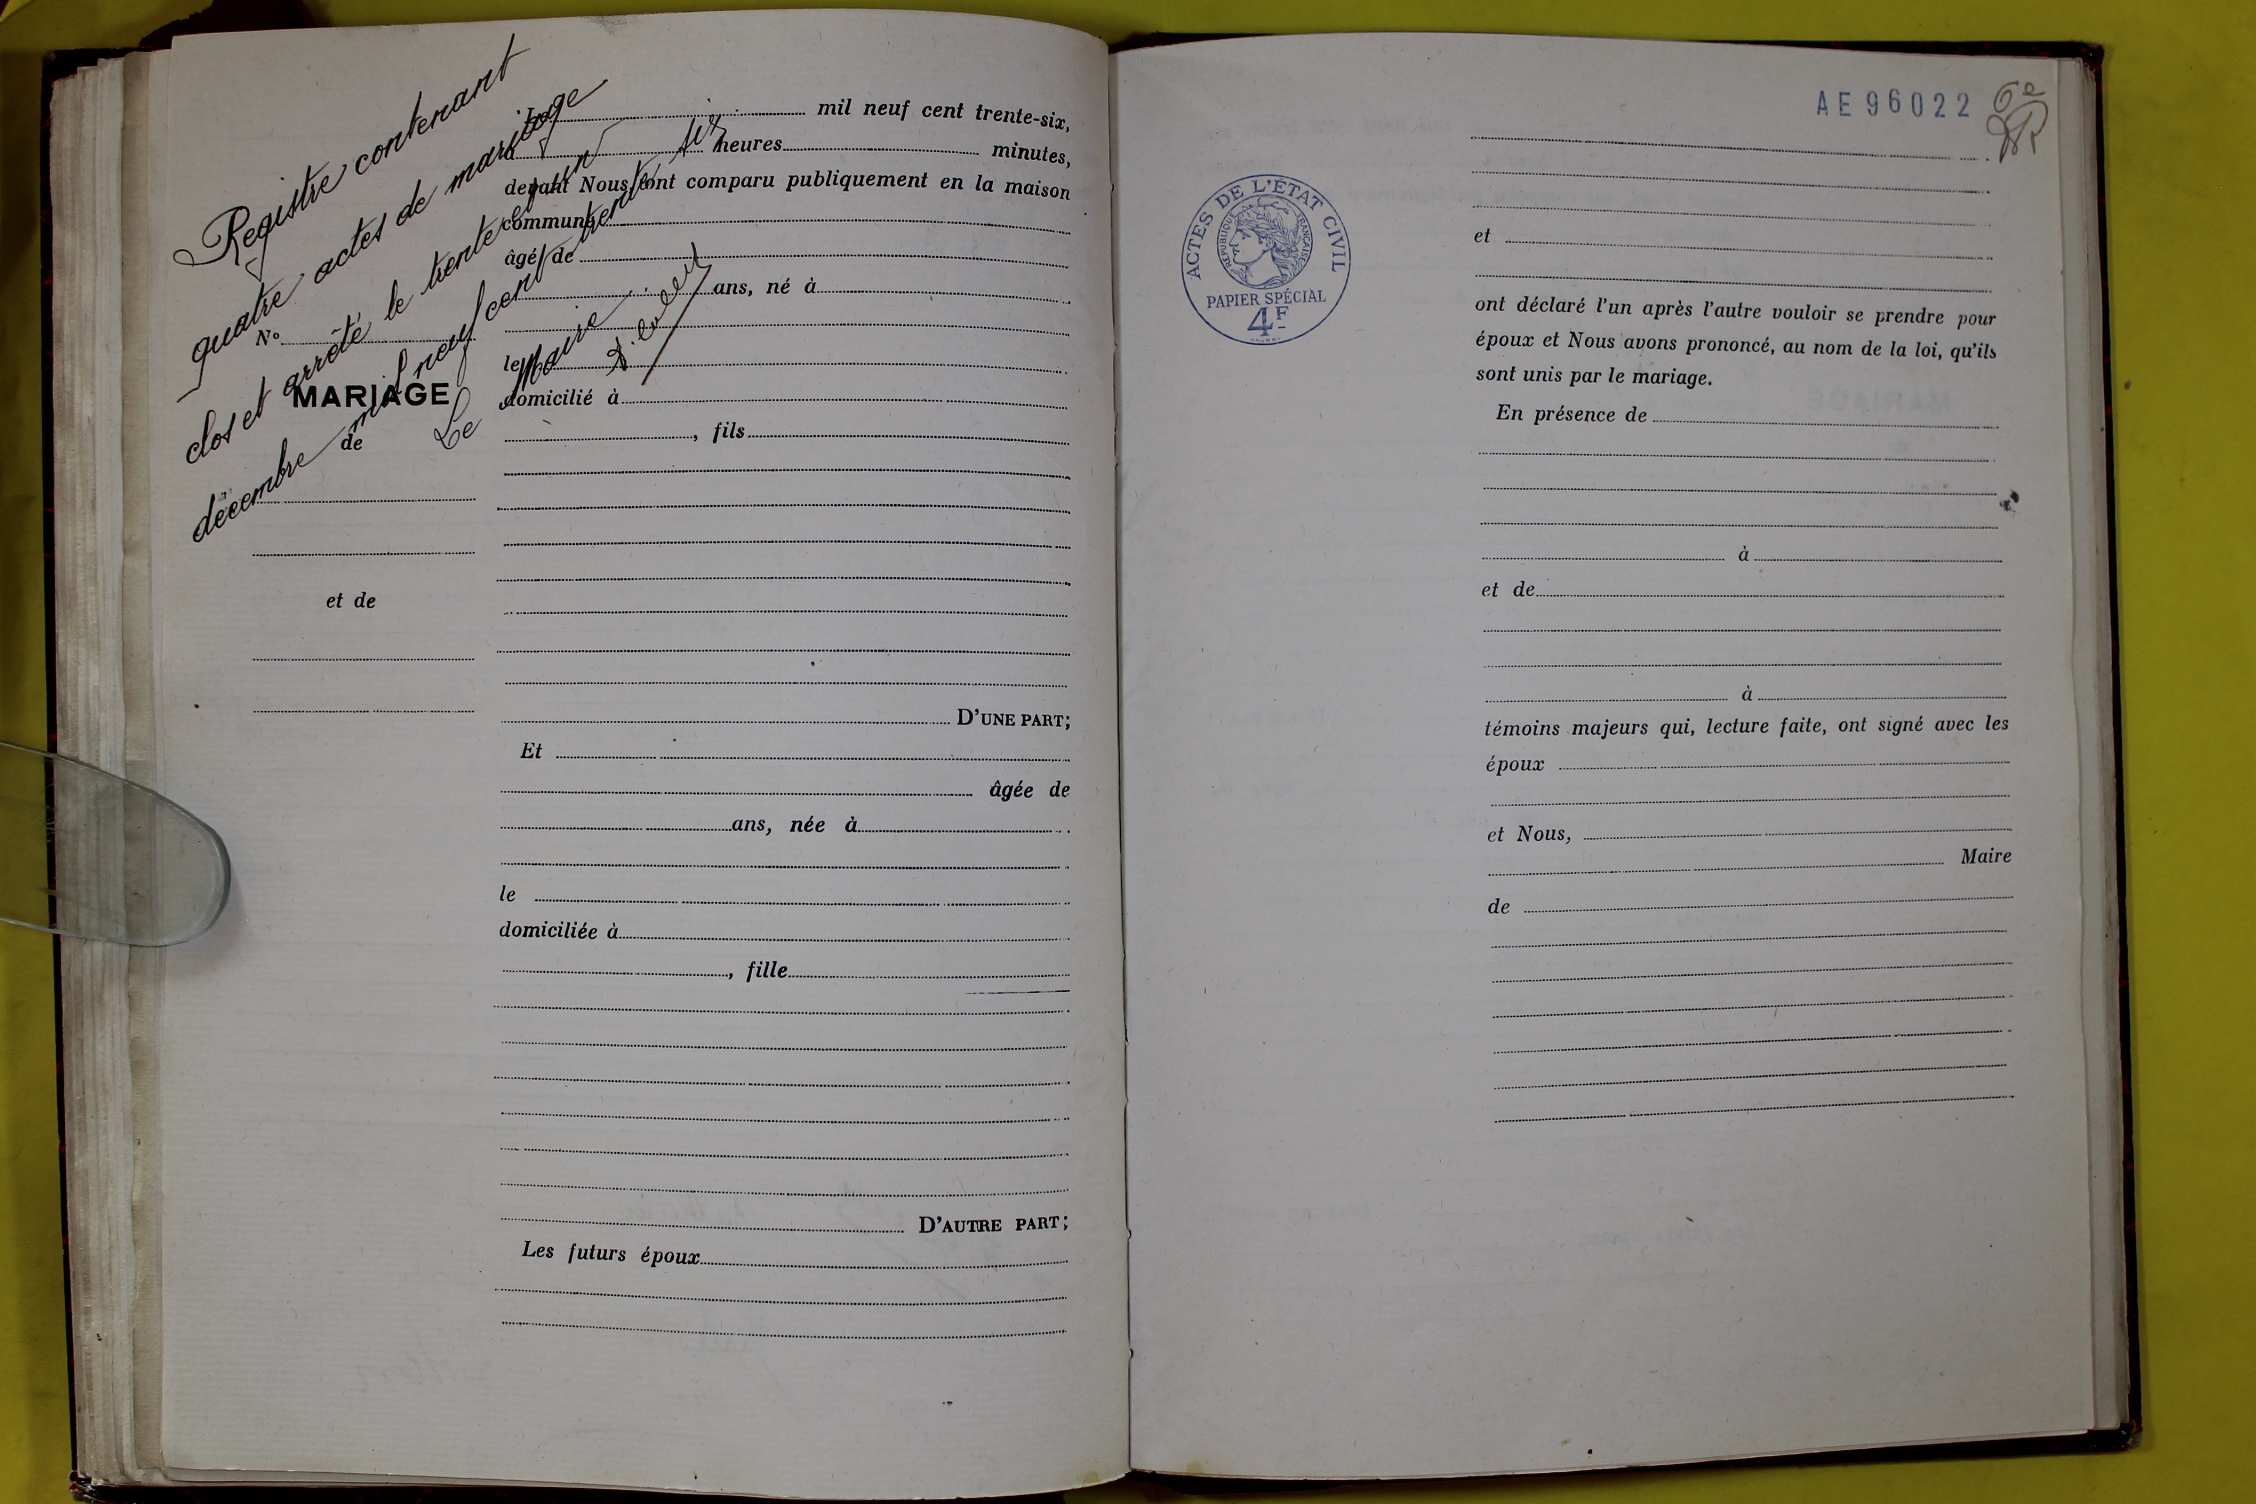 Registre contenant
quatre actes de mariage
clos et arrêté le trente et un
décembre mil neuf cent trente-six
Le Maire
Le mil neuf cent trente-six,
à heures minutes,
devant Nous ont comparu publiquement en la maison
commune
âgé de
ans, né à
le
domicilié à
, fils
D'UNE PART;
Et
âgée de
ans, née à
le
domiciliée à
, fille
D'AUTRE PART;
Les futurs époux
No
MARIAGE
de
et de
AE96022
6e
ACTES DE L'ÉTAT CIVIL
RÉPUBLIQUE FRANÇAISE
PAPIER SPÉCIAL
4F
et
ont déclaré l'un après l'autre vouloir se prendre pour
époux et Nous avons prononcé, au nom de la loi, qu'ils
sont unis par le mariage.
En présence de
à
et de
à
témoins majeurs qui, lecture faite, ont signé avec les
époux
et Nous,
Maire
de